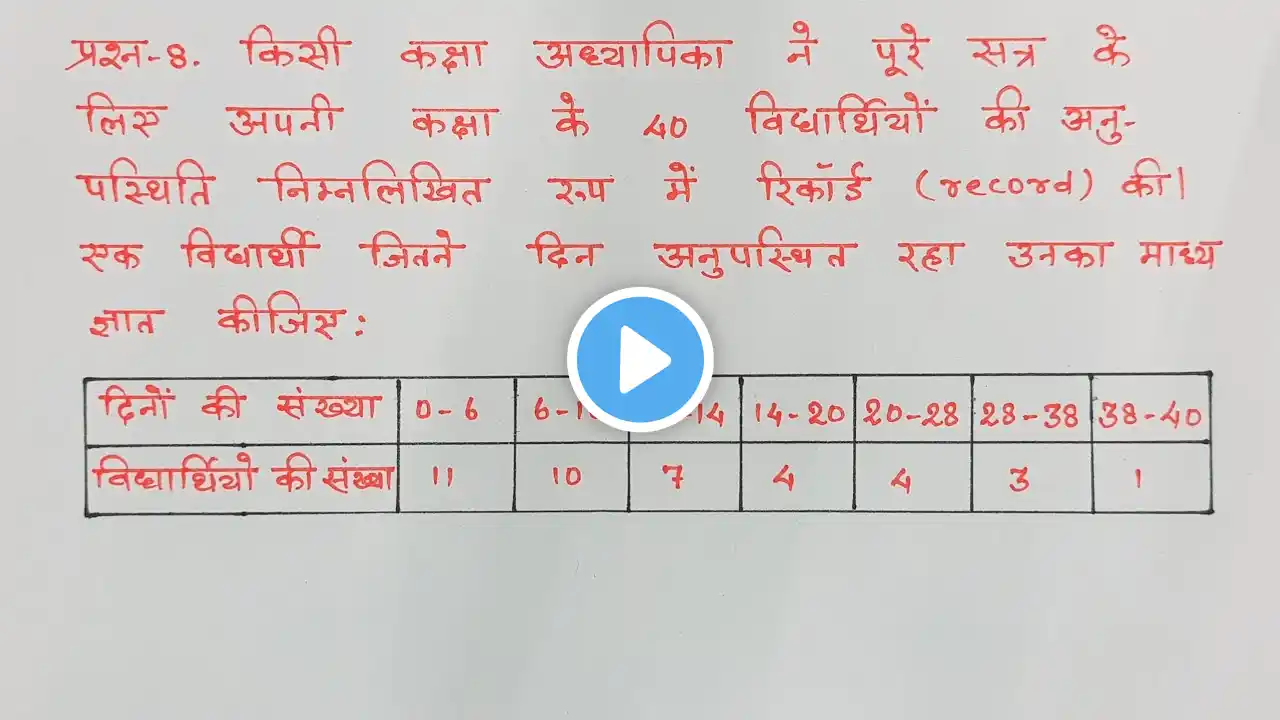 प्रश्न-8. किसी कक्षा अध्यापिका ने पूरे सत्र के
लिए अपनी कक्षा के 40 विद्यार्थियों की अनु-
पस्थिति निम्नलिखित रूप में रिकॉर्ड (record) की।
एक विद्यार्थी जितने दिन अनुपस्थित रहा उनका माध्य
ज्ञात कीजिए :
दिनों की संख्या 0-6 14-20 20-28 28-38 38-40
विद्यार्थियो की संख्या 11 10 7 4 4 3 1